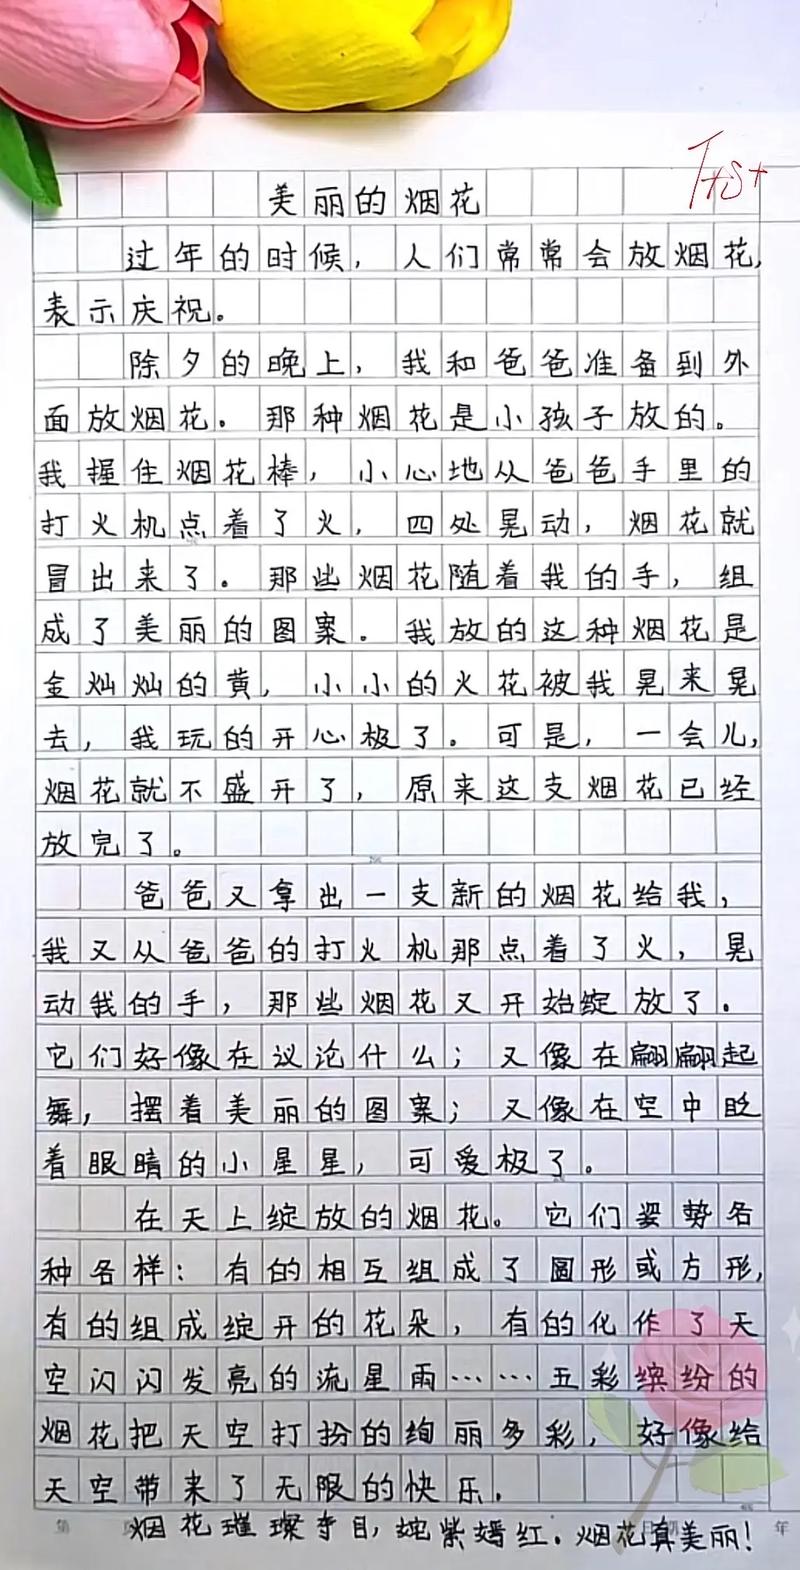 美丽的烟花
过年的时候，人们常常会放烟花，
表示庆祝。
除夕的晚上，我和爸爸准备到外
面放烟花。那种烟花是小孩子放的。
我握住烟花棒，小心地从爸爸手里的
打火机点着了火，四处晃动，烟花就
冒出来了。那些烟花随着我的手，组
成了美丽的图案。我放的这种烟花是
金灿灿的黄，小小的火花被我晃来晃
去，我玩的开心极了。可是，一会儿，
烟花就不盛开了，原来这支烟花已经
放完了。
爸爸又拿出一支新的烟花给我，
我又从爸爸的打火机那点着了火，晃
动我的手，那些烟花又开始绽放了。
它们好像在议论什么；又像在翩翩起
舞，摆着美丽的图案；又像在空中眨
着眼睛的小星星，可爱极了。
在天上绽放的烟花。它们姿势各
种各样：有的相互组成了圆形或方形，
有的组成绽开的花朵，有的化作了天
空闪闪发亮的流星雨……五彩缤纷的
烟花把天空打扮的绚丽多彩，好像给
天空带来了无限的快乐.
烟花璀璨夺目，姹紫嫣红。烟花真美丽！
第
年